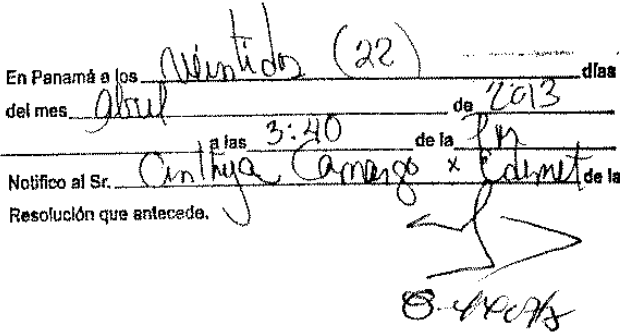 En Panamá a los Veintidos (22) días
del mes abril de 2013
a las 3:40 de la Pm
Notifico al Sr. Cinthya Camargo x Edemet de la
Resolución que antecede.